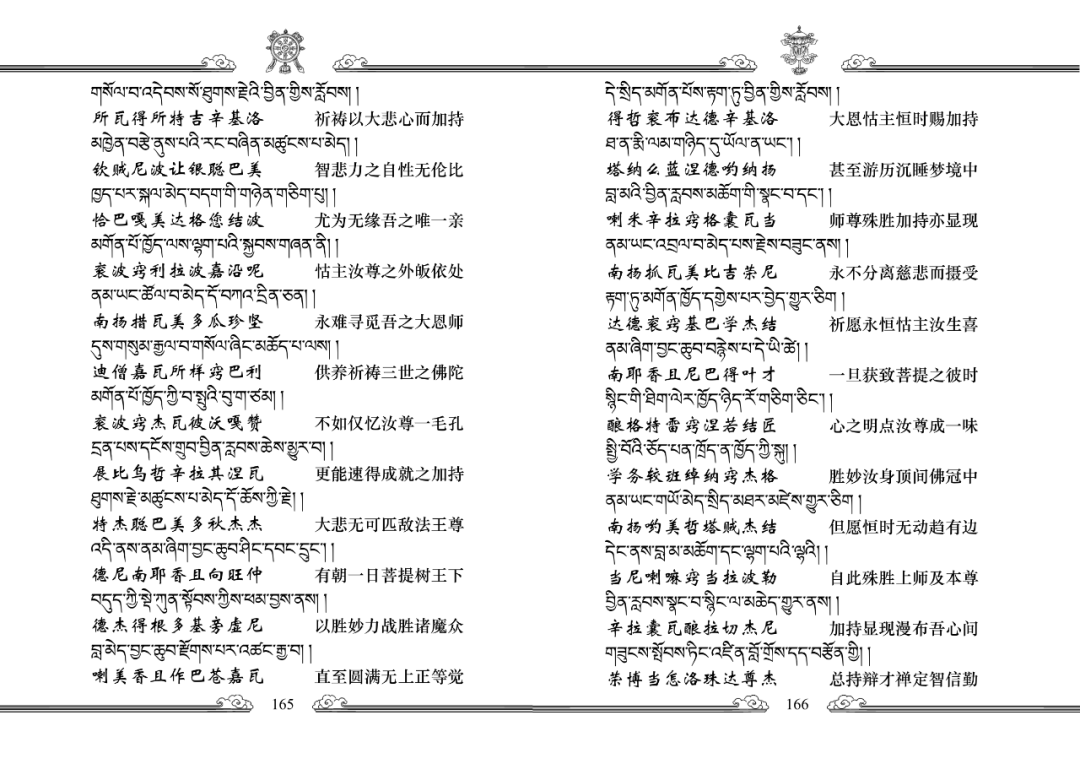 གསོལ་བ་འདེབས་སོ་ཐུགས་རྗེའི་བྱིན་གྱིས་རློབས། །
所瓦得所特吉辛基洛 祈祷以大悲心而加持
མཁྱེན་བརྩེ་ནུས་པའི་རང་བཞིན་མཚུངས་པ་མེད། །
钦贼尼波让银聪巴美 智悲力之自性无伦比
ཁྱད་པར་སྐལ་མེད་བདག་གི་གཉེན་གཅིག་པུ། །
恰巴嘎美达格您结波 尤为无缘吾之唯一亲
མགོན་པོ་ཁྱོད་ལས་ལྷག་པའི་སྐྱབས་གཞན་ནི། །
衮波窍利拉波嘉沿呢 怙主汝尊之外皈依处
ནམ་ཡང་ཚོལ་བ་མེད་དོ་བཀའ་དྲིན་ཅན། །
南扬措瓦美多瓜珍坚 永难寻觅吾之大恩师
དུས་གསུམ་རྒྱལ་བ་གསོལ་ཞིང་མཆོད་པ་ལས། །
迪僧嘉瓦所样窍巴利 供养祈祷三世之佛陀
མགོན་པོ་ཁྱོད་ཀྱི་བ་སྤུའི་བུ་ག་ཙམ། །
衮波窍杰瓦彼沃嘎赞 不如仅忆汝尊一毛孔
དྲན་པས་དངོས་གྲུབ་བྱིན་རླབས་ཆེས་མྱུར་བ། །
展比鸟哲辛拉其涅瓦 更能速得成就之加持
ཐུགས་རྗེ་མཚུངས་པ་མེད་དོ་ཆོས་ཀྱི་རྗེ། །
特杰聪巴美多秋杰杰 大悲无可匹敌法王尊
འདི་ནས་ནམ་ཞིག་བྱང་ཆུབ་ཤིང་དབང་དྲུང་། །
德尼南耶香且向旺仲 有朝一日菩提树王下
བདུད་ཀྱི་སྡེ་ཀུན་སྟོབས་ཀྱིས་ཕམ་བྱས་ནས། །
德杰得根多基旁虚尼 以胜妙力战胜诸魔众
བླ་མེད་བྱང་ཆུབ་རྫོགས་པར་འཚང་རྒྱ་བ། །
喇美香且作巴苍嘉瓦 直至圆满无上正等觉
165
དེ་སྲིད་མགོན་པོས་རྟག་ཏུ་བྱིན་གྱིས་རློབས། །
得哲衮布达德辛基洛 大恩怙主恒时赐加持
ཐ་ན་རྨི་ལམ་གཉིད་དུ་ཡོལ་ན་ཡང་། །
塔纳么蓝涅德哟纳扬 甚至游历沉睡梦境中
བླ་མའི་བྱིན་རླབས་མཆོག་གི་སྣང་བ་དང་། །
喇米辛拉窍格囊瓦当 师尊殊胜加持亦显现
ནམ་ཡང་འབྲལ་བ་མེད་པས་རྗེས་བཟུང་ནས། །
南扬抓瓦美比吉荣尼 永不分离慈悲而摄受
རྟག་ཏུ་མགོན་ཁྱོད་དགྱེས་པར་བྱེད་གྱུར་ཅིག །
达德衮窍基巴学杰结 祈愿永恒怙主汝生喜
ནམ་ཞིག་བྱང་ཆུབ་བརྙེས་པ་དེ་ཡི་ཚེ། །
南耶香且尼巴得叶才 一旦获致菩提之彼时
སྙིང་གི་ཐིག་ལེར་ཁྱོད་ཉིད་རོ་གཅིག་ཅིང་། །
酿格特雷窍涅若结匠 心之明点汝尊成一味
སྤྱི་བོའི་ཅོད་པན་ཁྲོད་ན་ཁྱོད་ཀྱི་སྐུ། །
学务较班绰纳窍杰格 胜妙汝身顶间佛冠中
ནམ་ཡང་གཡོ་མེད་སྲིད་མཐར་མཛེས་གྱུར་ཅིག །
南扬哟美哲塔贼杰结 但愿恒时无动趋有边
དེང་ནས་བླ་མ་མཆོག་དང་ལྷག་པའི་ལྷའི། །
当尼喇嘛窍当拉波勒 自此殊胜上师及本尊
བྱིན་རླབས་སྣང་བ་སྙིང་ལ་མཆེད་གྱུར་ནས། །
辛拉囊瓦酿拉切杰尼 加持显现漫布吾心间
གཟུངས་སྤོབས་ཏིང་འཛིན་བློ་གྲོས་དད་བརྩོན་གྱི། །
荣博当怎洛珠达尊杰 总持辩才禅定智信勤
166